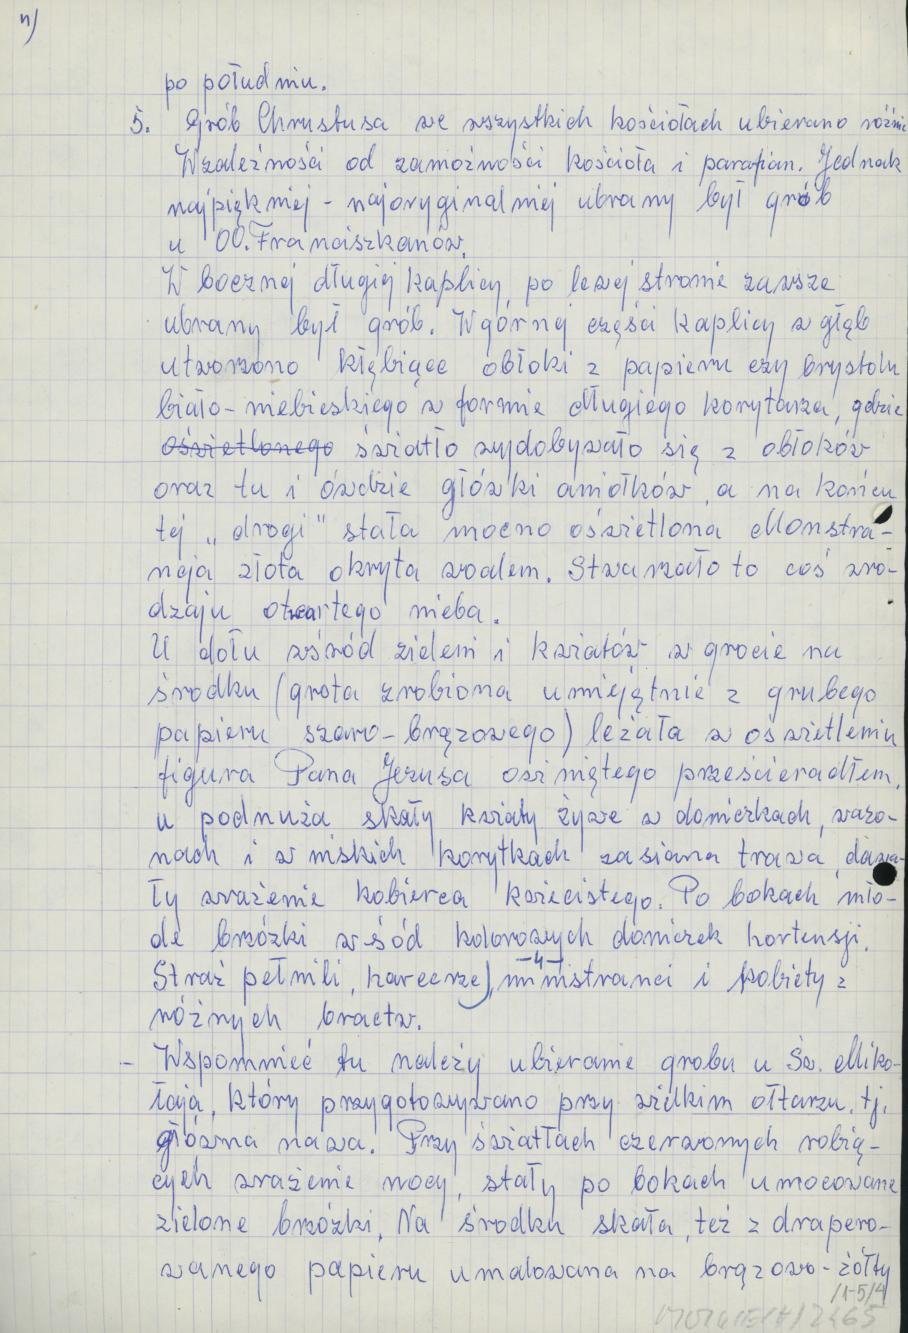 4)
po południu.
5. Grób Chrystusa we wszystkich kościołach ubierano różnie
W zależności od zamożności kościoła i parafian. Jednak
najpiękniej - najoryginalniej ubrany był grób
u OO. Franciszkanów.
W bocznej długiej kaplicy, po lewej stronie zawsze
ubrany był grób. W górnej części kaplicy w głąb
utworzono kłębiące obłoki z papieru czy brystolu
biało-niebieskiego w formie długiego korytarza, gdzie
oświetlonego światło wydobywało się z obłoków
oraz tu i ówdzie główki aniołków, a na końcu
tej „drogi" stała mocno oświetlona Monstra-
ncja złota okryta woalem. Stwarzało to coś w ro-
dzaju otwartego nieba.
U dołu wśród zieleni i kwiatów w grocie na
środku (grota zrobiona umiejętnie z grubego
papieru szaro-brązowego) leżała w oświetleniu
figura Pana Jezusa owiniętego prześcieradłem,
u podnuża skały kwiaty żywe w doniczkach, wazo-
nach i w niskich korytkach zasiana trawa, dawa-
ły wrażenie kobierca kwiecistego. Po bokach mło-
de brzózki w śód kolorowych doniczek hortensji.
-4-
Straż pełnili, harcerze, ministranci i kobiety z
różnych bractw.
- Wspomnieć tu należy ubieranie grobu u Św. Miko-
łaja, który przygotowywano przy wielkim ołtarzu, tj.
główna nawa. Przy światłach czerwonych robią-
cych wrażenie nocy, stały po bokach umocowane
zielone brzózki. Na środku skała, też z drapero-
wanego papieru umalowana na brązowo-żółty
/1-5/4